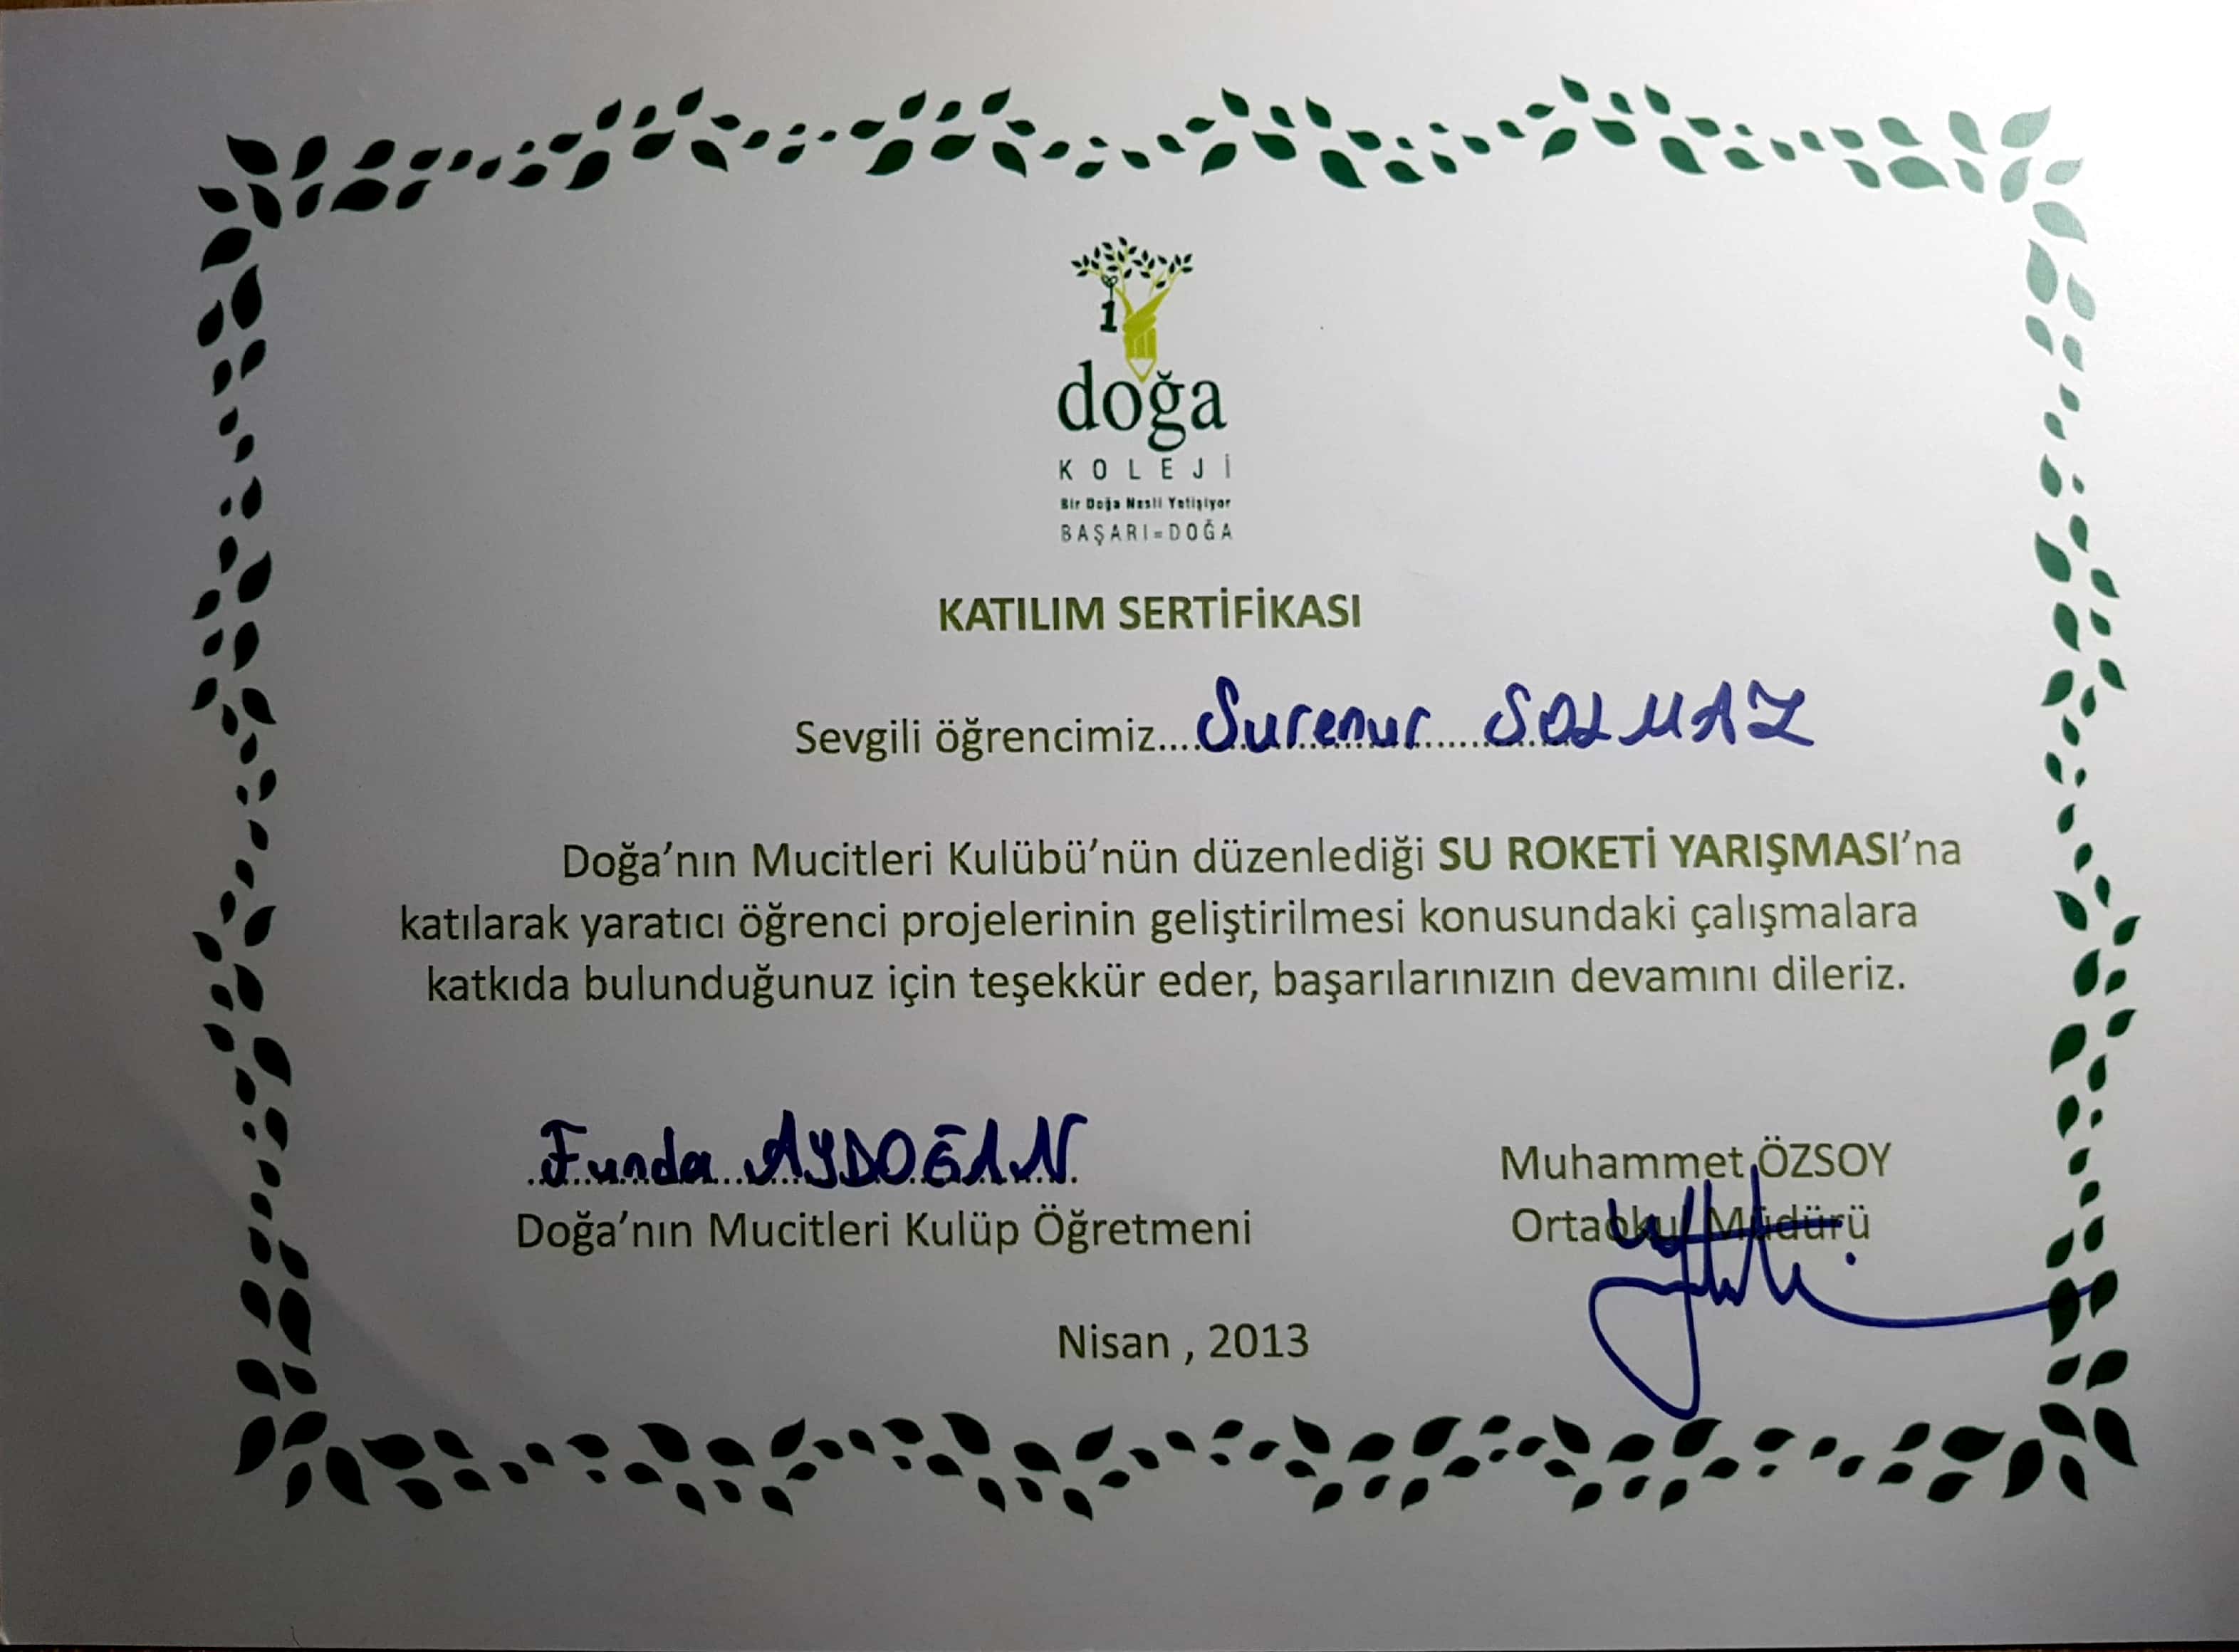 1
doğa
KOLEJİ
Bir Doğa Nesli Yetişiyor
BAŞARI=DOĞA
KATILIM SERTİFİKASI
Sevgili öğrencimiz....Surenur SOLMAZ
Doğa’nın Mucitleri Kulübü’nün düzenlediği SU ROKETİ YARIŞMASI’na
katılarak yaratıcı öğrenci projelerinin geliştirilmesi konusundaki çalışmalara
katkıda bulunduğunuz için teşekkür eder, başarılarınızın devamını dileriz.
Funda AYDOĞAN
Doğa’nın Mucitleri Kulüp Öğretmeni
Muhammet ÖZSOY
Ortaokul Müdürü
Nisan , 2013